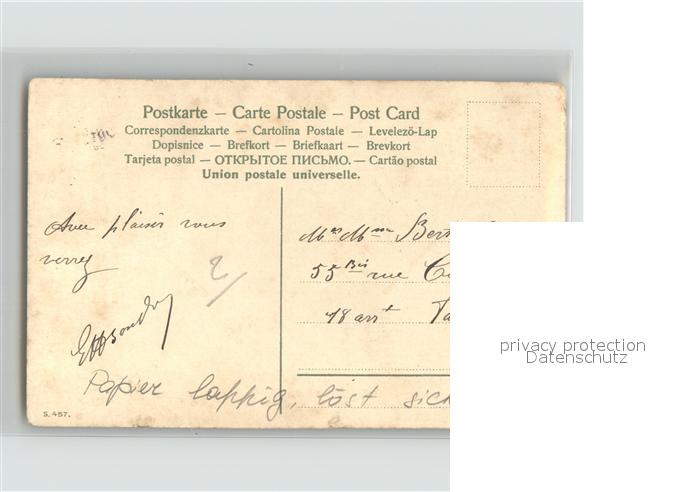 Postkarte – Carte Postale – Post Card
Correspondenzkarte – Cartolina Postale – Levelező-Lap
Dopisnice – Brefkort – Briefkaart – Brevkort
Tarjeta postal – ОТКРЫТОЕ ПИСЬМО. – Cartão postal
Union postale universelle.
Avec plaisir vous
verrez
Mr Mme
55 Bis rue
18 arrt
Papier lappig, löst sich
S. 457.
privacy protection
Datenschutz